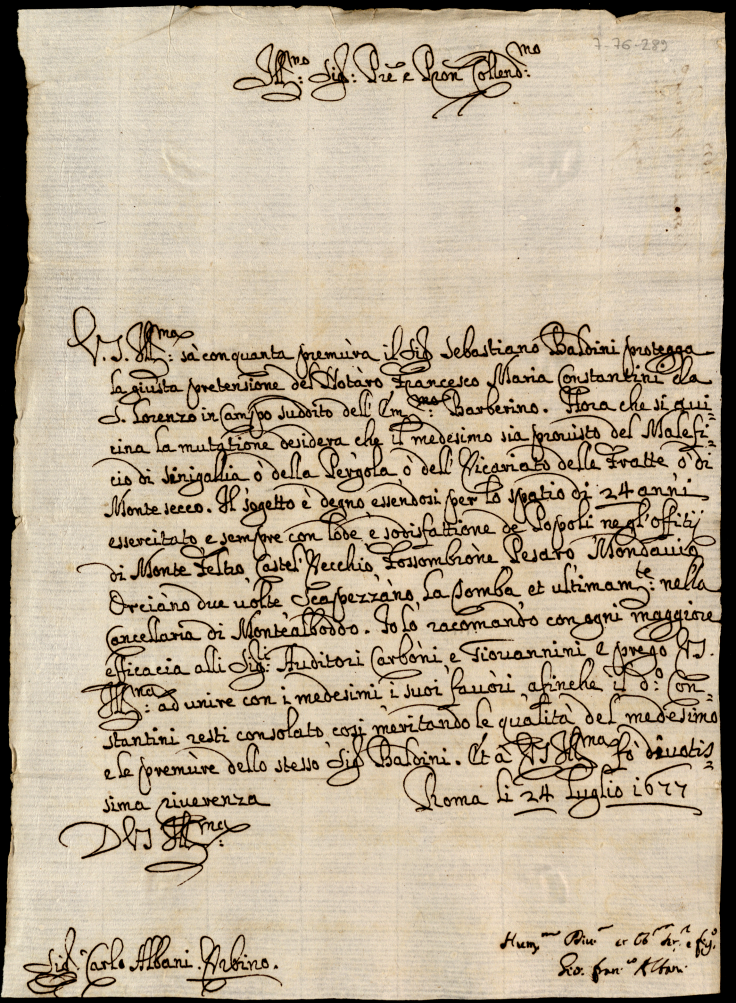 7-76-289
Ill:mo Sig: Pre e Pron Collend:mo
V.S. Ill:ma sà con quanta premùra il Sig Sebastiano Baldini protegga
la giusta pretensione del Notàro Francesco Maria Constantini da
S. Lorenzo in Campo suddito dell' Em:mo Barberino. Hora che si aui-
cina la mutatione desidera che il medesimo sia prouisto del Malefi-
cio di Sinigallia ò della Pergola ò dell' Vicariato delle Fratte ò di
Monte secco. Il sogetto è degno essendosi per lo spatio di 24 anni
essercitato e sempre con lode è sodisfattione de Popoli negl' offitij
di Monte Feltro Castel Vecchio Fossombrone Pesaro Mondauio
Orciano due uolte Scapezzano La Tomba et ultimam:te nella
Cancellaria di Montealboddo. Io lo racomando con ogni maggiore
efficacia alli Sig:ri Auditori Carboni e Giouannini e prego VS.
Ill:ma ad unire con i medesimi i suoi fauori afinche il d:o Con-
stantini resti consolato cosi meritando le qualità del medesimo
e le premùre dello stesso Sig Baldini. Et à VS Ill:ma fò deuotis-
sima riuerenza
Roma li 24 Luglio 1677
D VS Ill:ma
Hum:mo Diu:mo et Ob:mo Ser:re e fig:o
Gio. fran:co Albani
Sig. Carlo Albani. Urbino.